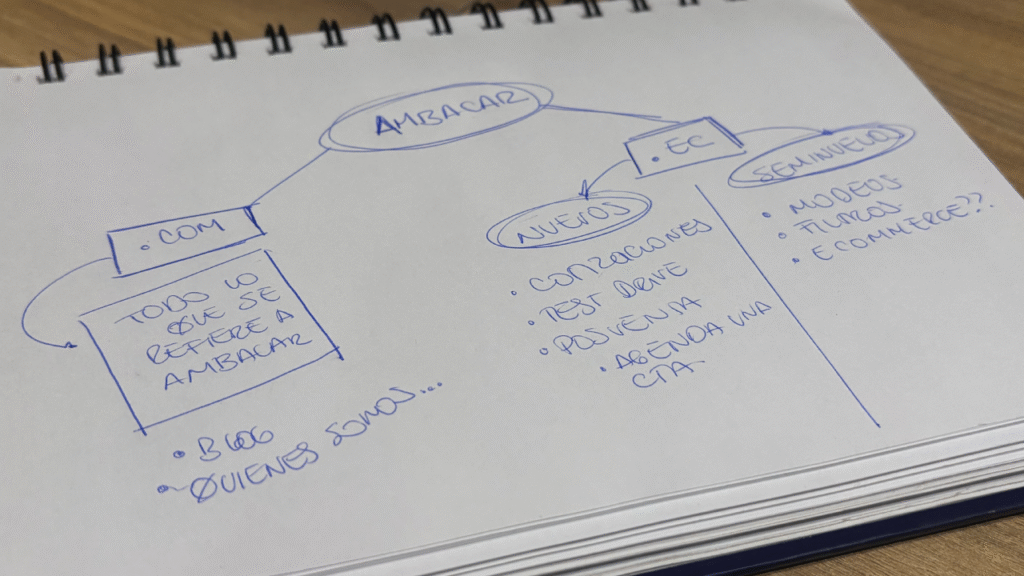 AMBACAR
.COM
TODO LO
QUE SE
REFIERE A
AMBACAR
• BLOG
• QUIENES SOMOS...
.EC
NUEVOS
• COTIZACIONES
• TEST DRIVE
• POSVENTA
• AGENDA UNA
CITA
SEMINUEVOS
• MODEOS
• FILTROS
• ECOMMERCE??.